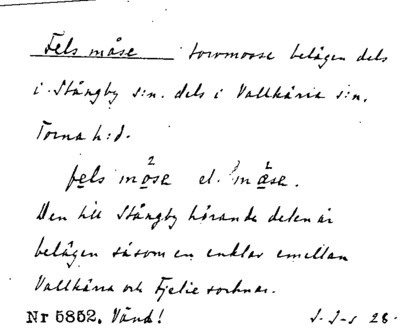 Fels måse torvmosse belägen dels
i Stångby s:n. dels i Vallkärra s:n.
Torna h:d.
fels måse el. måse.
Den till Stångby hörande delen är
belägen såsom en enklav emellan
Vallkärra och Fjelie socknar.
Nr 5852. Vänd! 28.